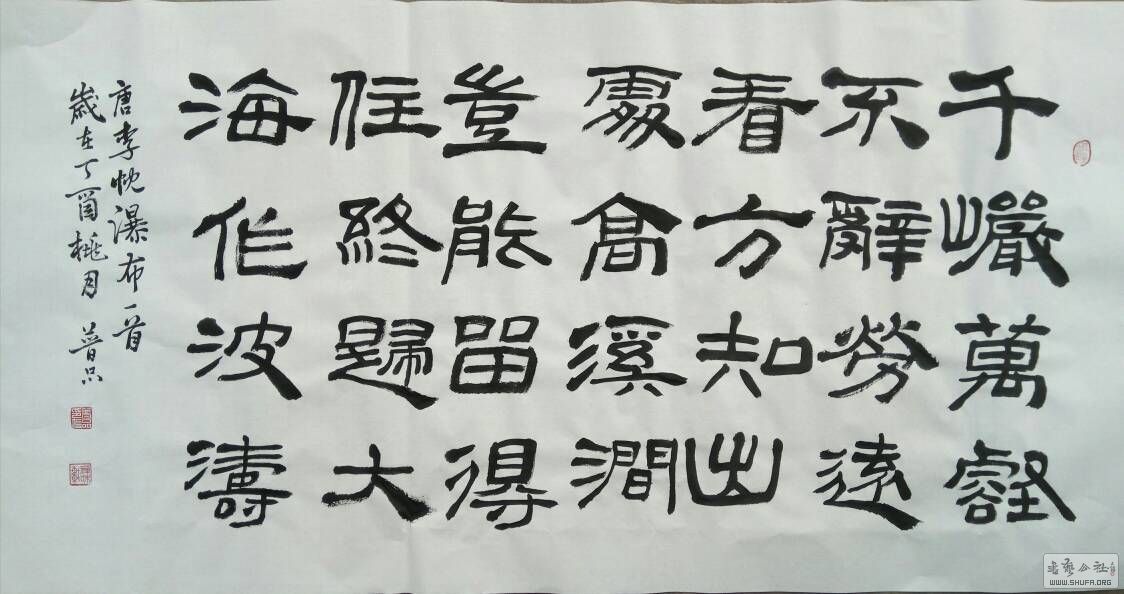 千巗萬壑
不辭勞遠
看方知出
處高溪澗
豈能留得
住終歸大
海作波濤
唐李忱瀑布一首
歲在丁酉桃月 普
书艺公社
WWW.SHUFA.ORG